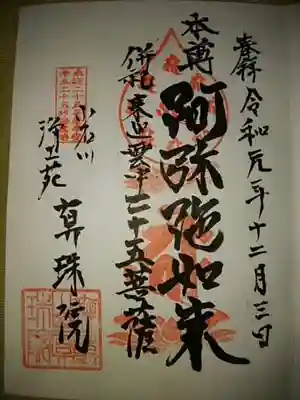 奉拝 令和元年十二月三日
本尊 阿弥陀如来
併祀 来迎雲中二十五菩薩
小石川
浄土苑 真珠院